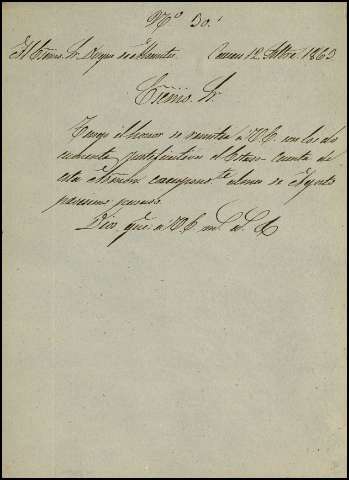 Nº 30.
Al Exmo. Sr. Duque de Caucus 12 Stbre 1863
Exmo. Sr.
Tengo el honor de remitir a V.E. con los do
cumentos justificativos el Estado cuenta de
esta correspte. al mes de Agosto
proximo pasado.
Dios gue. a V.E. ms. as.